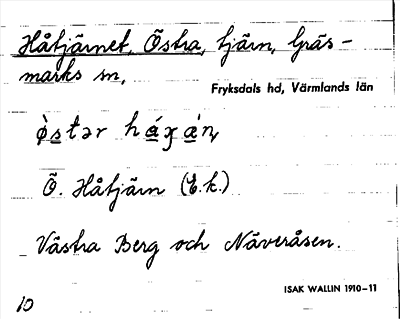 Håtjärnet, Östra, tjärn, Gräs-
marks sn,
Fryksdals hd, Värmlands län
ø̀stər háɟæ̀ɳ
Ö. Håtjärn (E.k.)
Västra Berg och Näveråsen.
ISAK WALLIN 1910-11
10